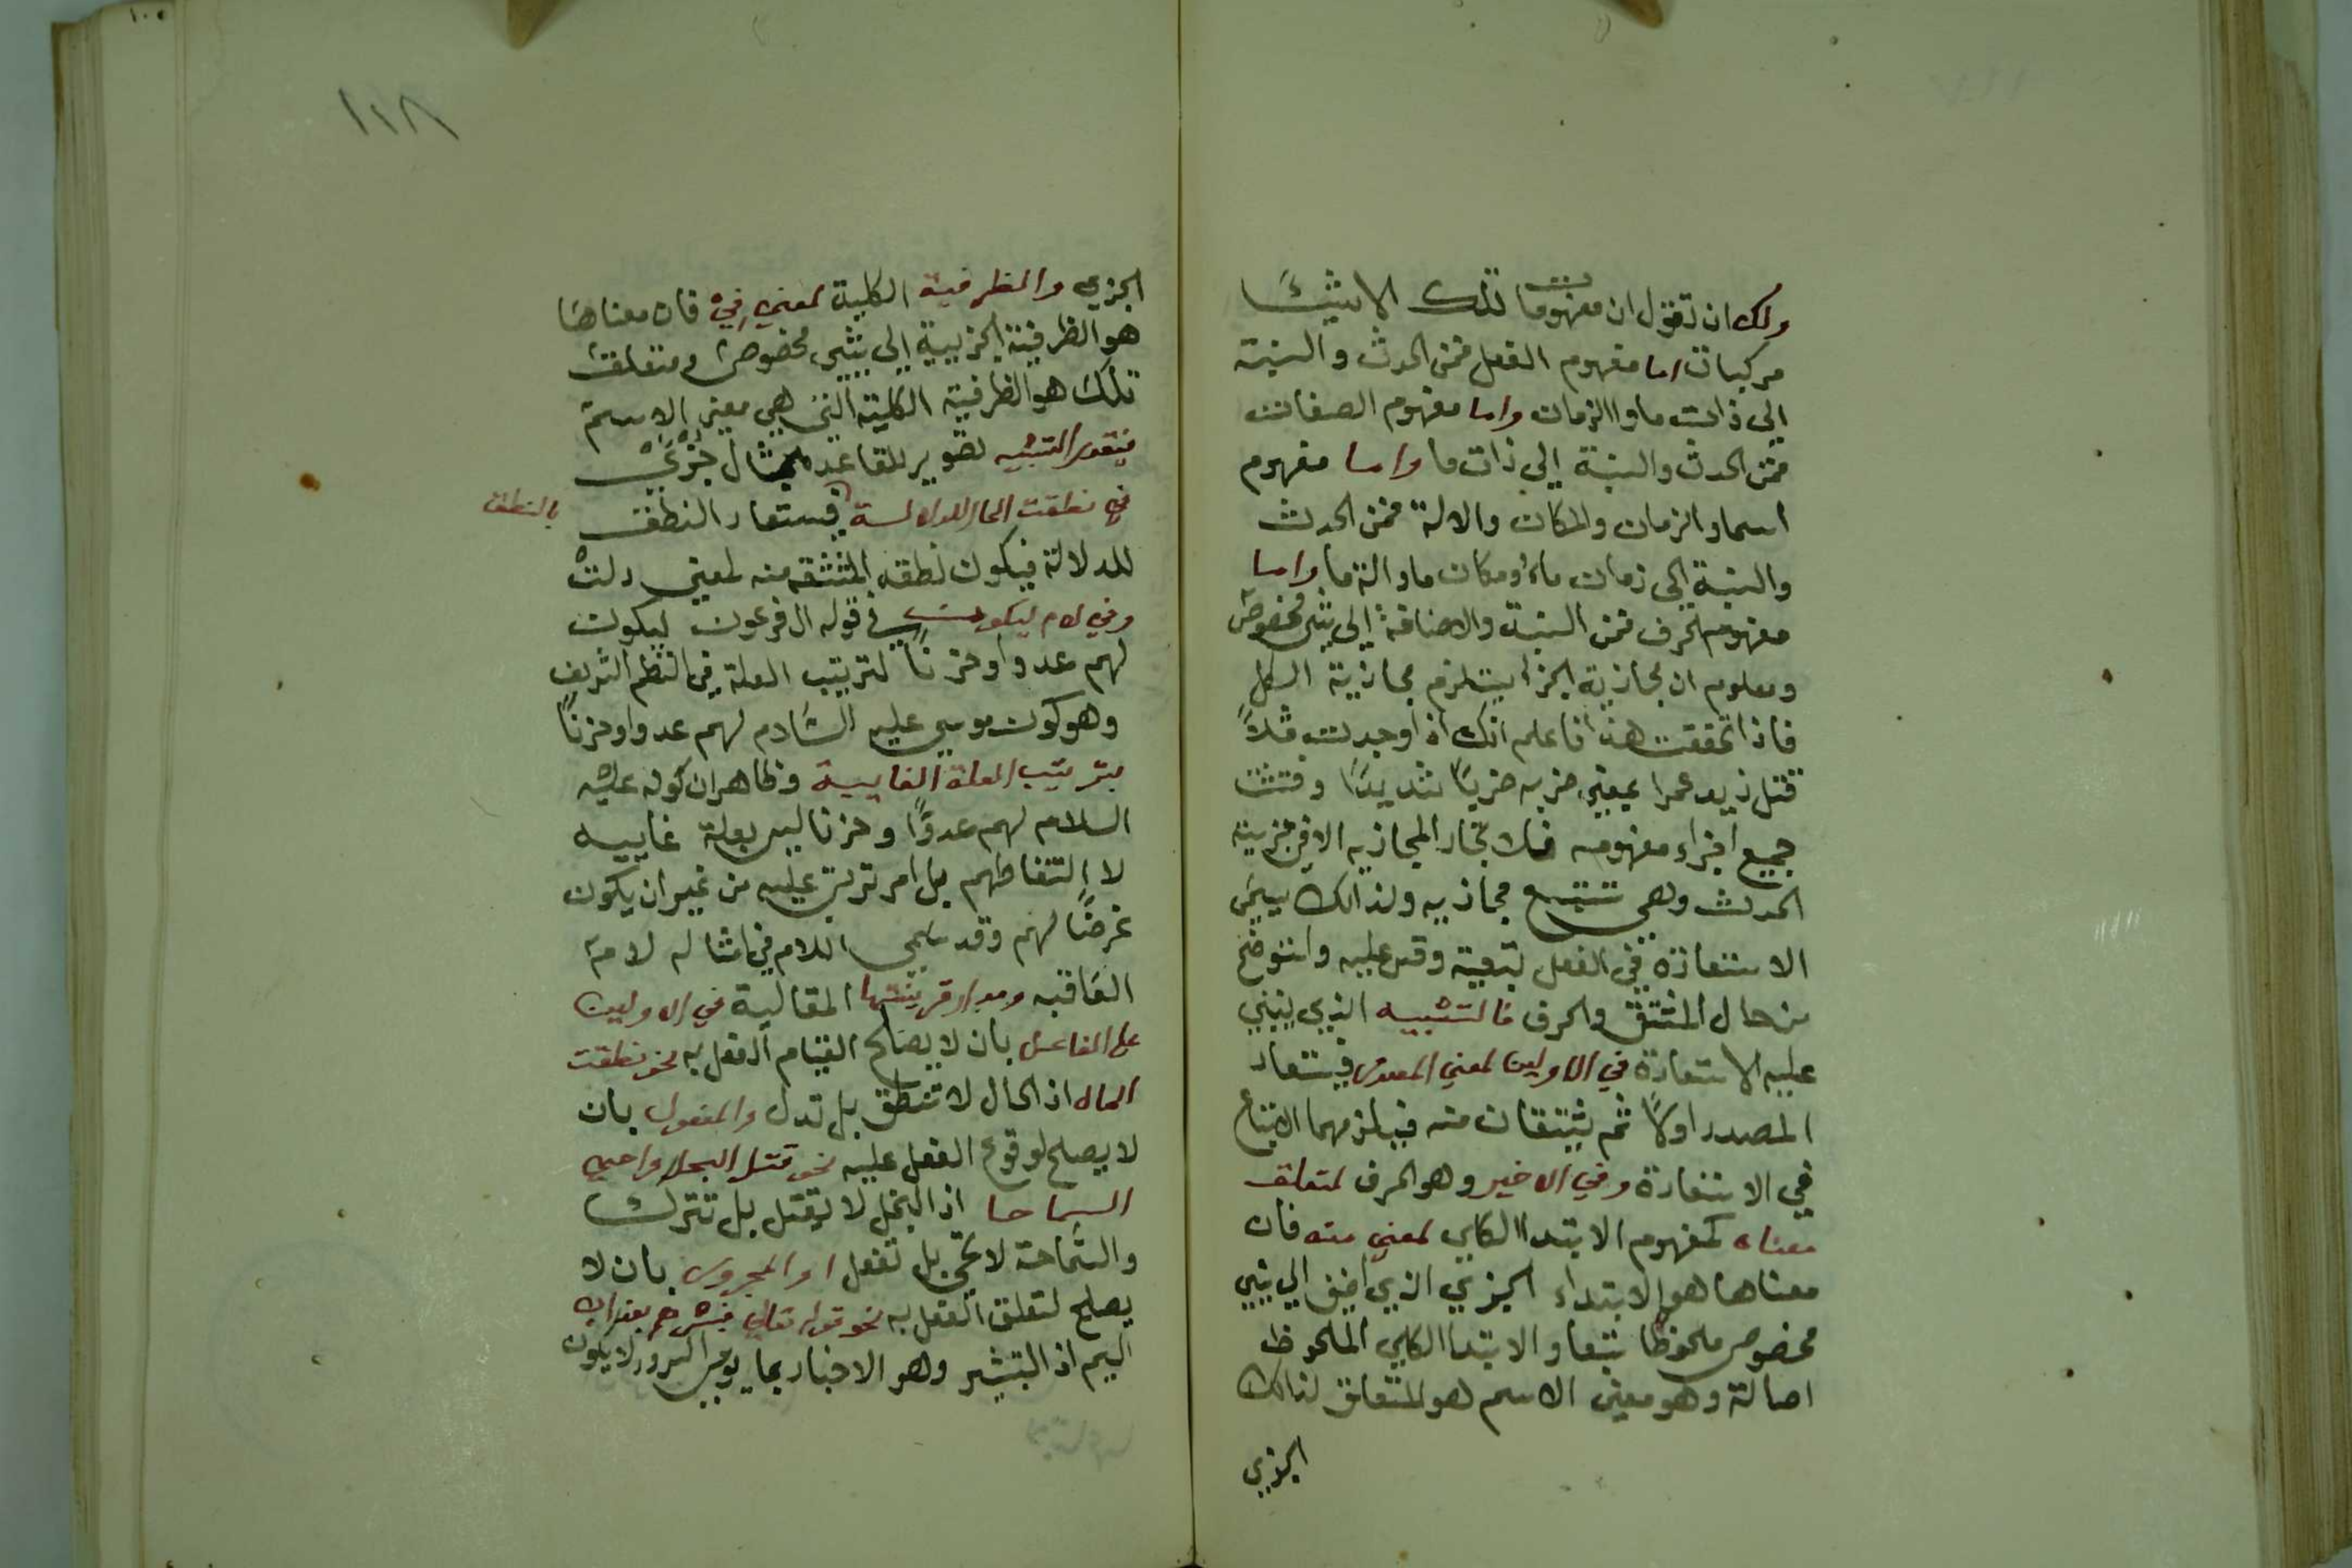 ولك ان تقول ان مفهومات تلك الاشيا
مركبات اما مفهوم الفعل فمن الحدث والنسبة
الى ذات ما والزمان واما مفهوم الصفات
فمن الحدث والنسبة الى ذات ما واما مفهوم
اسماء الزمان والمكان والالة فمن الحدث
والنسبة الى زمان ما او مكان ما والة ما واما
مفهوم الحرف فمن النسبة والاضافة الى شي مخصوص
ومعلوم ان مجازية الجزا يستلزم مجازية الكل
فاذا تحققت هذا فاعلم انك اذا وجدت مثلاً
قتل زيد عمرا بمعنى ضربه ضرباً شديداً وفتشت
جميع اجزاء مفهومه فلا تجد المجازيه الا في جزييته
الحدث وهي تتبع مجازيه ولذالك يسمى
الاستعارة في الفعل تبعية وقس عليه واستوضح
من حال المشتق والحرف فالتشبيه الذي يبتني
عليه الاستعارة في الاولين لمعني المصدر فيستعار
المصدر اولاً ثم يشتقان منه فيلزمهما الاتباع
في الاستعارة وفي الاخير وهو الحرف لمتعلق
معناه كمفهوم الابتدا الكلي لمعني منه فان
معناها هو الابتداء الجزيي الذي اضيف الى شيي
مخصوص ملحوظا تبعا والابتدا الكلي الملحوظ
اصالة وهو معنى الاسم هو المتعلق لذالك
الجزيي
١١٨
الجزيي والظرفية الكلية لمعني في فان معناها
هو الظرفية الجزيية الى شيي مخصوص ومتعلق
تلك هو الظرفية الكلية التي هي معنى الاسم
فيقدر التشبيه تصوير للقاعده بمثال جزئي
في نطقت الحال للدلالة فيستعار النطق
بالنطق
للدلالة فيكون نطقة المشتقه منه لمعنى دلت
وفي لام ليكون في قوله ال فرعون ليكون
لهم عدوا وحزنا لترتيب العلة في النظم الشريف
وهو كون موسى عليه السلام لهم عدوا وحزناً
بترتيب العلة الغايية وظاهر ان كونه عليه
السلام لهم عدوًا وحزنا ليس بعلة غاييه
لالتقاطهم بل امر ترتب عليه من غير ان يكون
غرضًا لهم وقد يسمى اللام في امثاله لام
العاقبه ومدار قرينتها المقالية في الاولين
على الفاعل بان لا يصلح القيام الفعل به نحو نطقت
الحال اذ الحال لا تنطق بل تدل والمفعول بان
لا يصلح لوقوع الفعل عليه نحو قتل البخل واحيي
السماحا اذ البخل لا يقتل بل تترك
والسماحة لا تحي بل تفعل او المجرور بان لا
يصلح لتعلق الفعل به نحو قوله تعالى فبشرهم بعذاب
اليم اذ التبشير وهو الاخبار بما يوجب السرور لا يكون